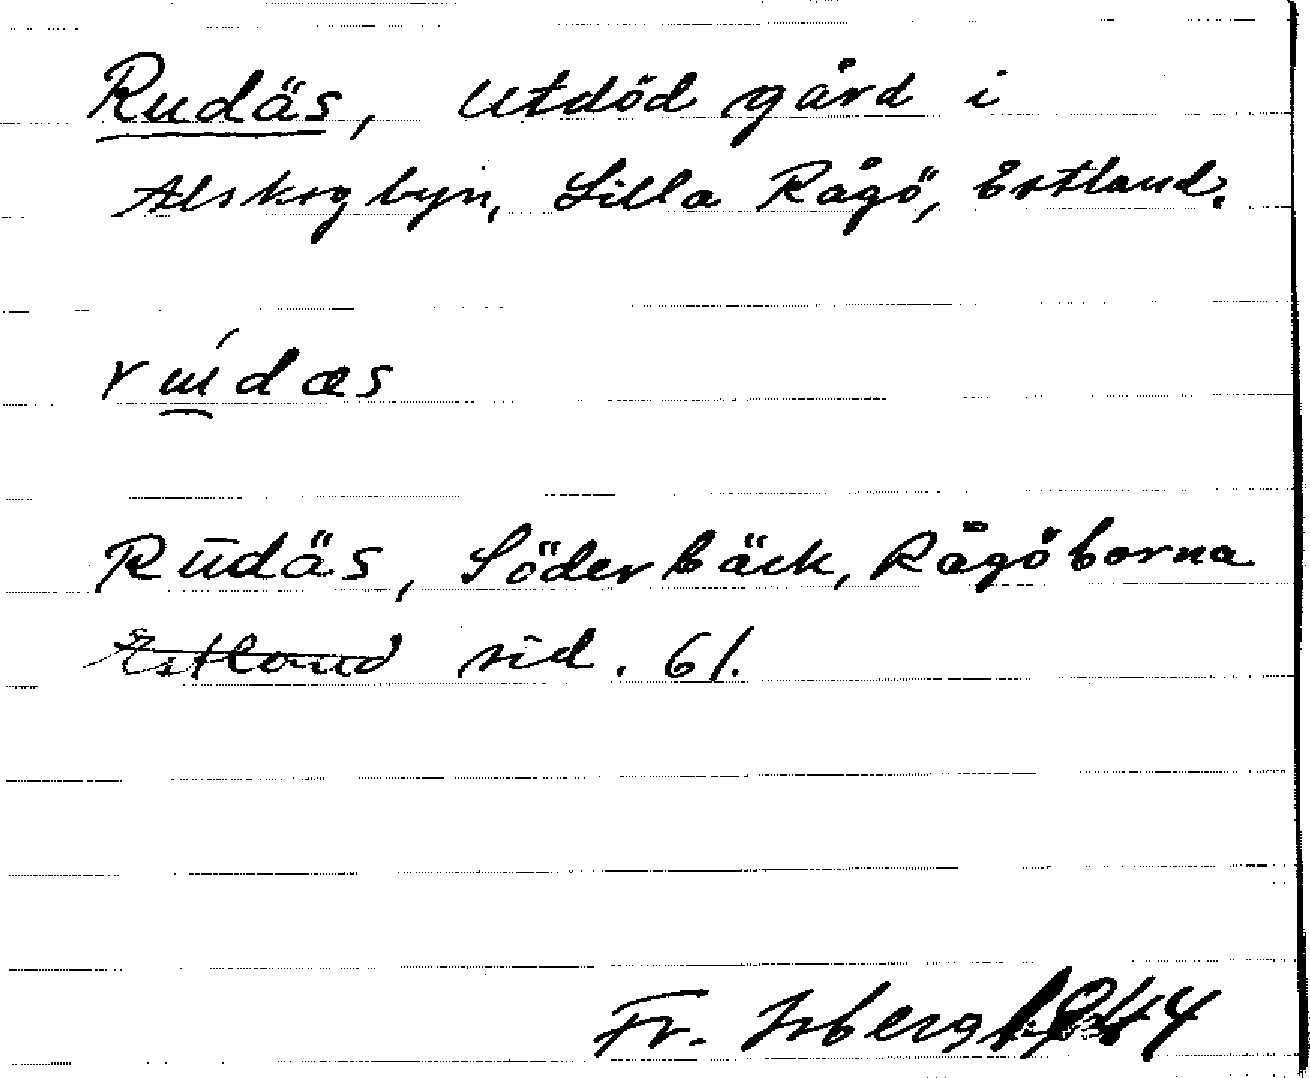 Rudäs, utdöd gård i
Alskogbyn, Lilla Rågö, Estland.
rúdæs
Rūdäs, Söderbäck, Rågöborna
Estland sid. 61.
Fr. Isberg 1944